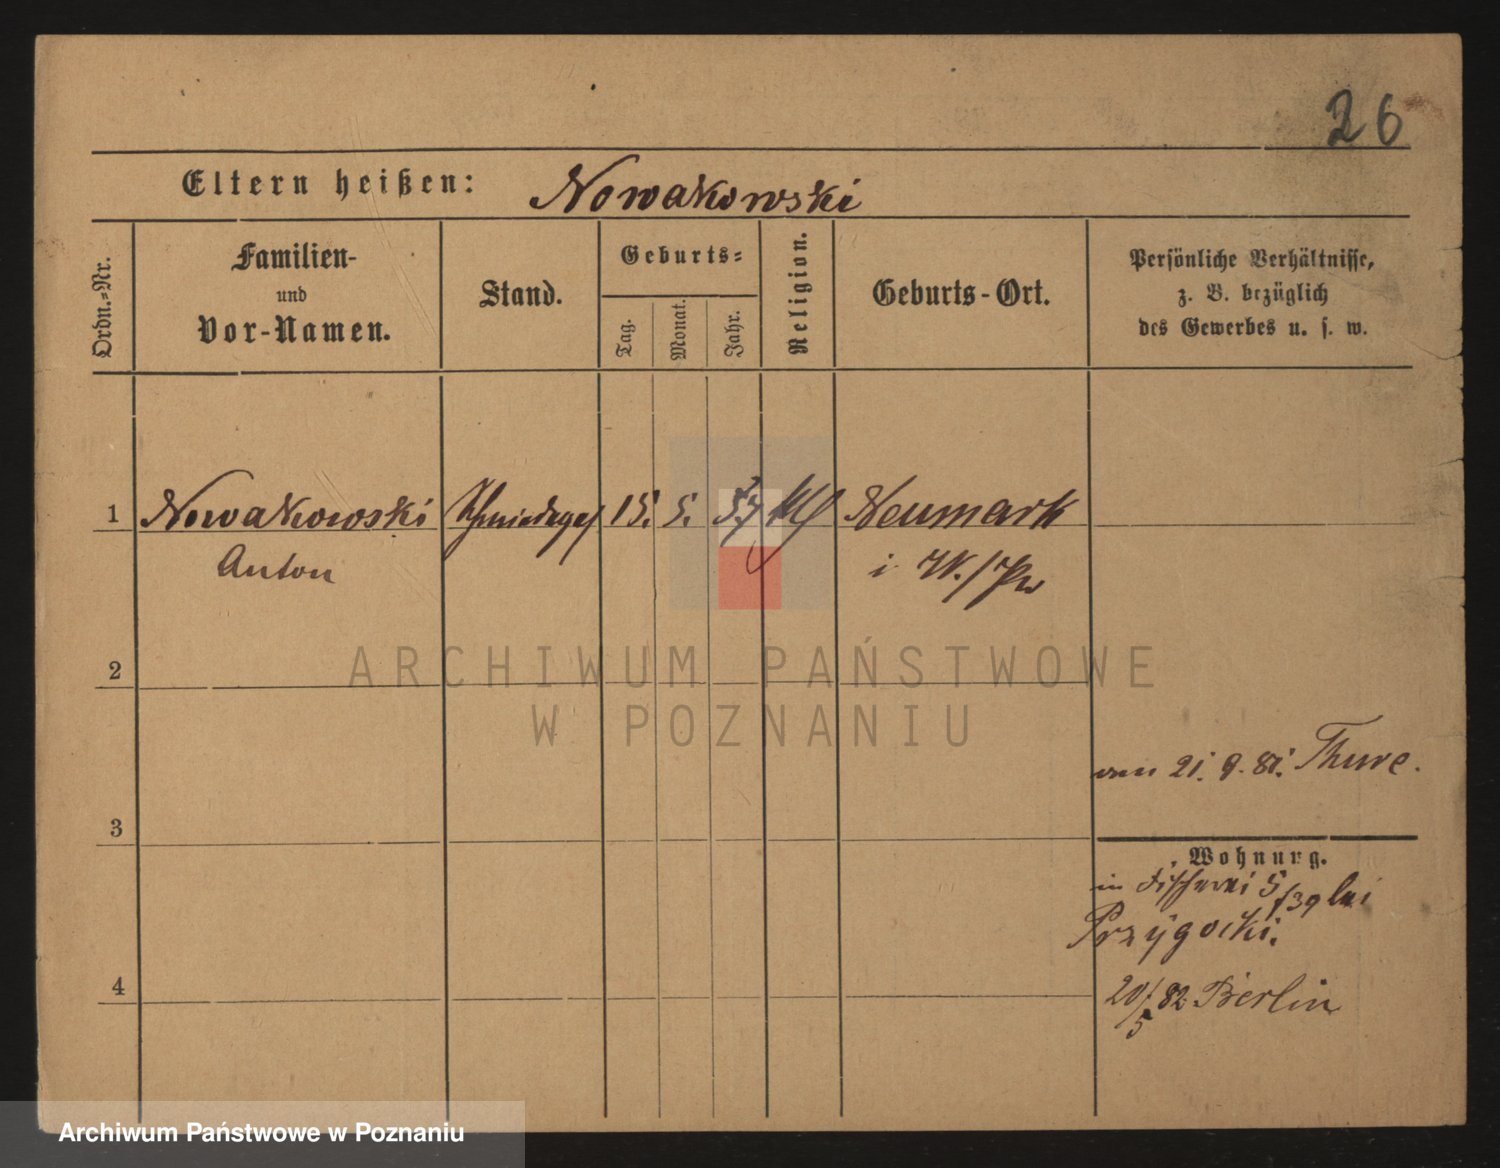 26
Eltern heißen: Nowakowski
Ordn.-Nr.
Familien-
und
Vor-Namen.
Stand.
Geburts-
Tag.
Monat.
Jahr.
Religion.
Geburts-Ort.
Persönliche Verhältnisse,
z. B. bezüglich
des Gewerbes u. s. w.
1 Nowakowski Schmiedeges 15. 5. kth Neumark
Anton i. W./Pr
2
ARCHIWUM PAŃSTWOWE
W POZNANIU
von 21. 9. 81. Thure.
3
Wohnung.
in Fischerei 5/39 bei
Przygocki.
4
20/5 82. Berlin
Archiwum Państwowe w Poznaniu